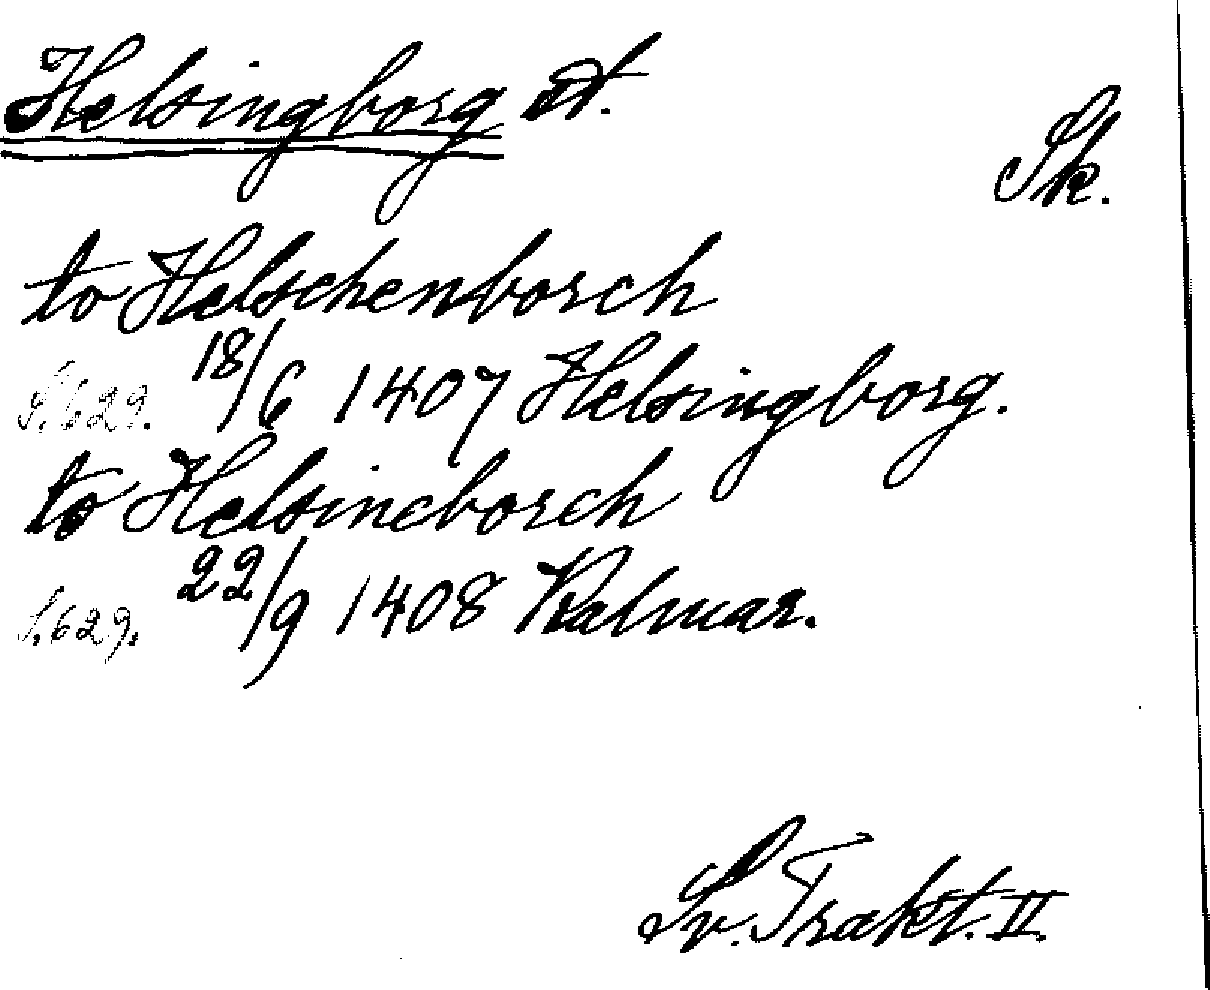 Helsingborg st.
Sk.
to Helschenborch
S. 629. 18/6 1407 Helsingborg.
to Helsineborch
S. 629. 22/9 1408 Kalmar.
Sv. Trakt. II.